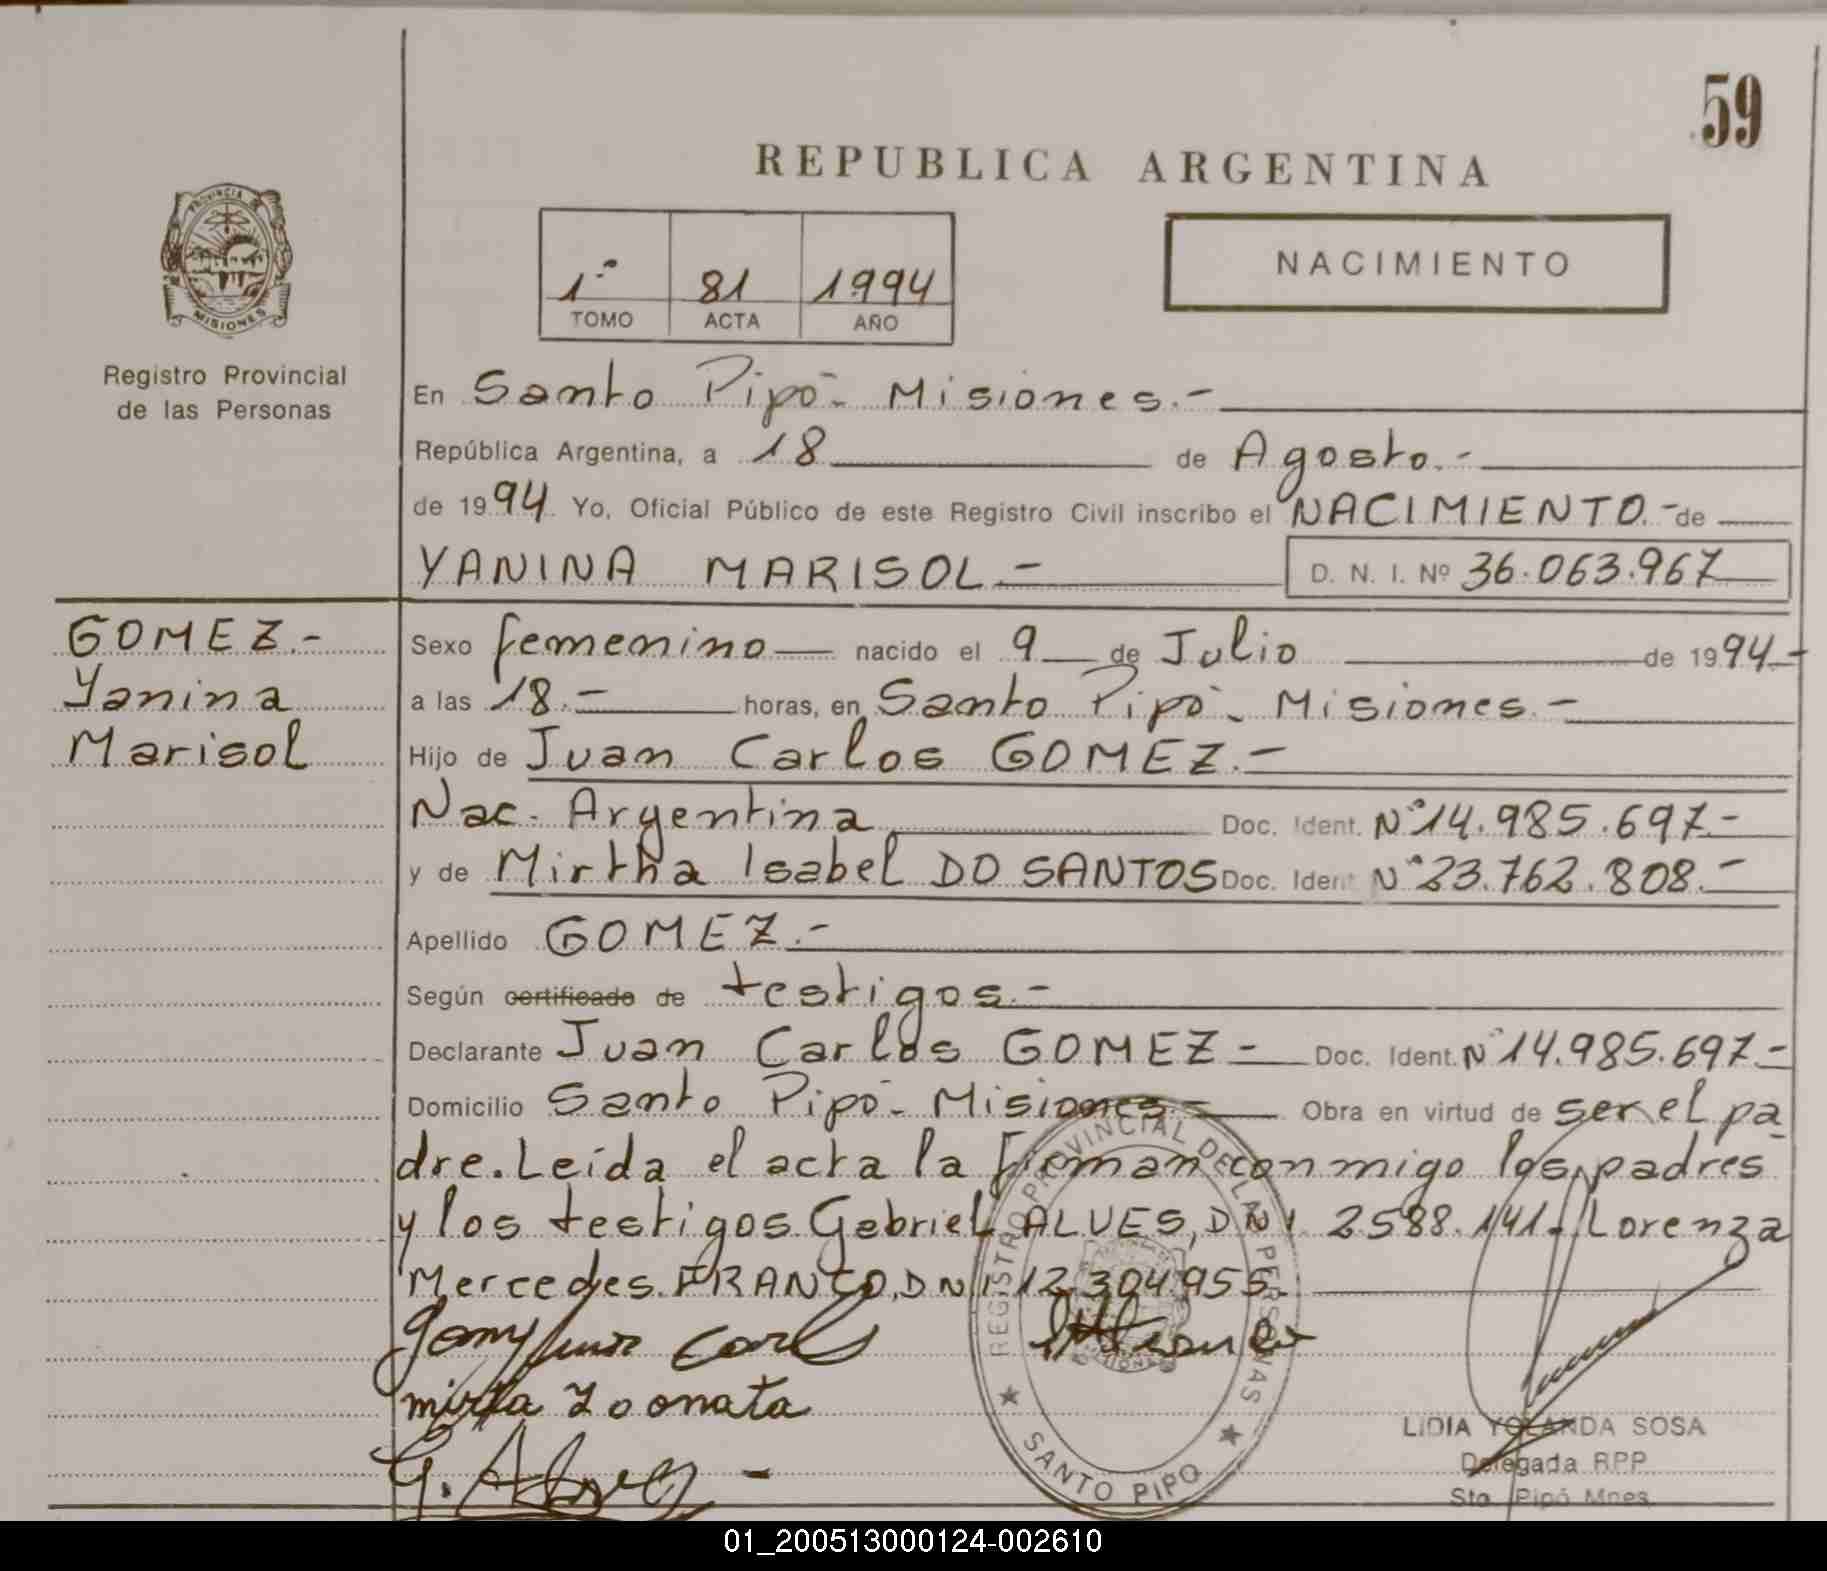 59
REPUBLICA ARGENTINA
PROVINCIA DE
MISIONES
Registro Provincial
de las Personas
1º 81 1994
TOMO ACTA AÑO
NACIMIENTO
En Santo Pipó - Misiones.-
República Argentina, a 18 de Agosto.-
de 1994. Yo, Oficial Público de este Registro Civil inscribo el NACIMIENTO.- de
YANINA MARISOL.- D. N. I. Nº 36.063.967
GOMEZ.-
Yanina
Marisol
Sexo femenino nacido el 9 de Julio de 1994.-
a las 18.- horas, en Santo Pipó - Misiones.-
Hijo de Juan Carlos GOMEZ.-
Nac. Argentina Doc. Ident. Nº 14.985.697.-
y de Mirtha Isabel DO SANTOS Doc. Ident. Nº 23.762.808.-
Apellido GOMEZ.-
Según certificado de testigos.-
Declarante Juan Carlos GOMEZ - Doc. Ident. Nº 14.985.697.-
Domicilio Santo Pipó - Misiones.- Obra en virtud de ser el pa
dre. Leída el acta la firman conmigo los padres
y los testigos Gabriel ALVES, DNI 2588.141. Lorenza
Mercedes FRANCO, DNI 12.304.955.-
REGISTRO PROVINCIAL DE LAS PERSONAS
SANTO PIPO
G. Alvez -
LIDIA YOLANDA SOSA
Delegada RPP
Sto. Pipó Mnes.
01_200513000124-002610